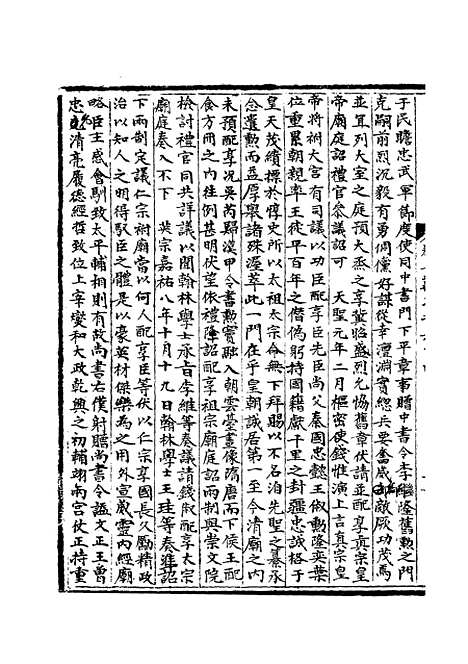 于民瞻忠武軍節度使同中書門下平章事贈中書令李繼隆舊勲之門
克嗣前烈沉毅有勇倜儻好謀從幸澶淵實總兵要奮威敵厥功茂焉
並宜列大室之庭預大烝之享冀協盛烈允恊舊章伏請並配享真宗皇
帝廟庭詔禮官參議詔可 天聖元年二月樞密使錢惟演上言真宗皇
帝將祔大宮有司議以功臣配享臣先臣尚父秦國忠懿王俶勲隆奕葉
位重累朝親率王徒平百年之僭偽躬持國籍獻千里之封疆忠誠格于
皇天茂績標於惇史所以太祖太宗命無下拜賜以不名洎先聖之纂承
念遺勲而益厚舉諸殊渥萃此一門在乎皇朝誠居第一至今清廟之內
未預配享況吳芮顯漢甲令書勲竇融入朝雲臺畫像隋唐而下侯王配
食方冊之內徃例甚明伏望依禮降詔配享祖宗廟庭詔兩制與崇文院
檢討禮官同共詳議以聞翰林學士承㫖李維等奏議請錢俶配享太宗
廟庭奏入不下 英宗嘉祐八年十月十九日翰林學士王珪等奏準詔
下兩制定議仁宗祔廟當以何人配享臣等伏以仁宗享國長久勵精政
治以知人之明得馭臣之體是以豪英材傑樂為之用外宣威靈內經廟
略臣主感會馴致太平輔相則有故尚書右僕射贈尚書令謚文正王曾
忠清亮履德經哲致位上宰燮和大政乾興之初輔翊兩宮仗正持重